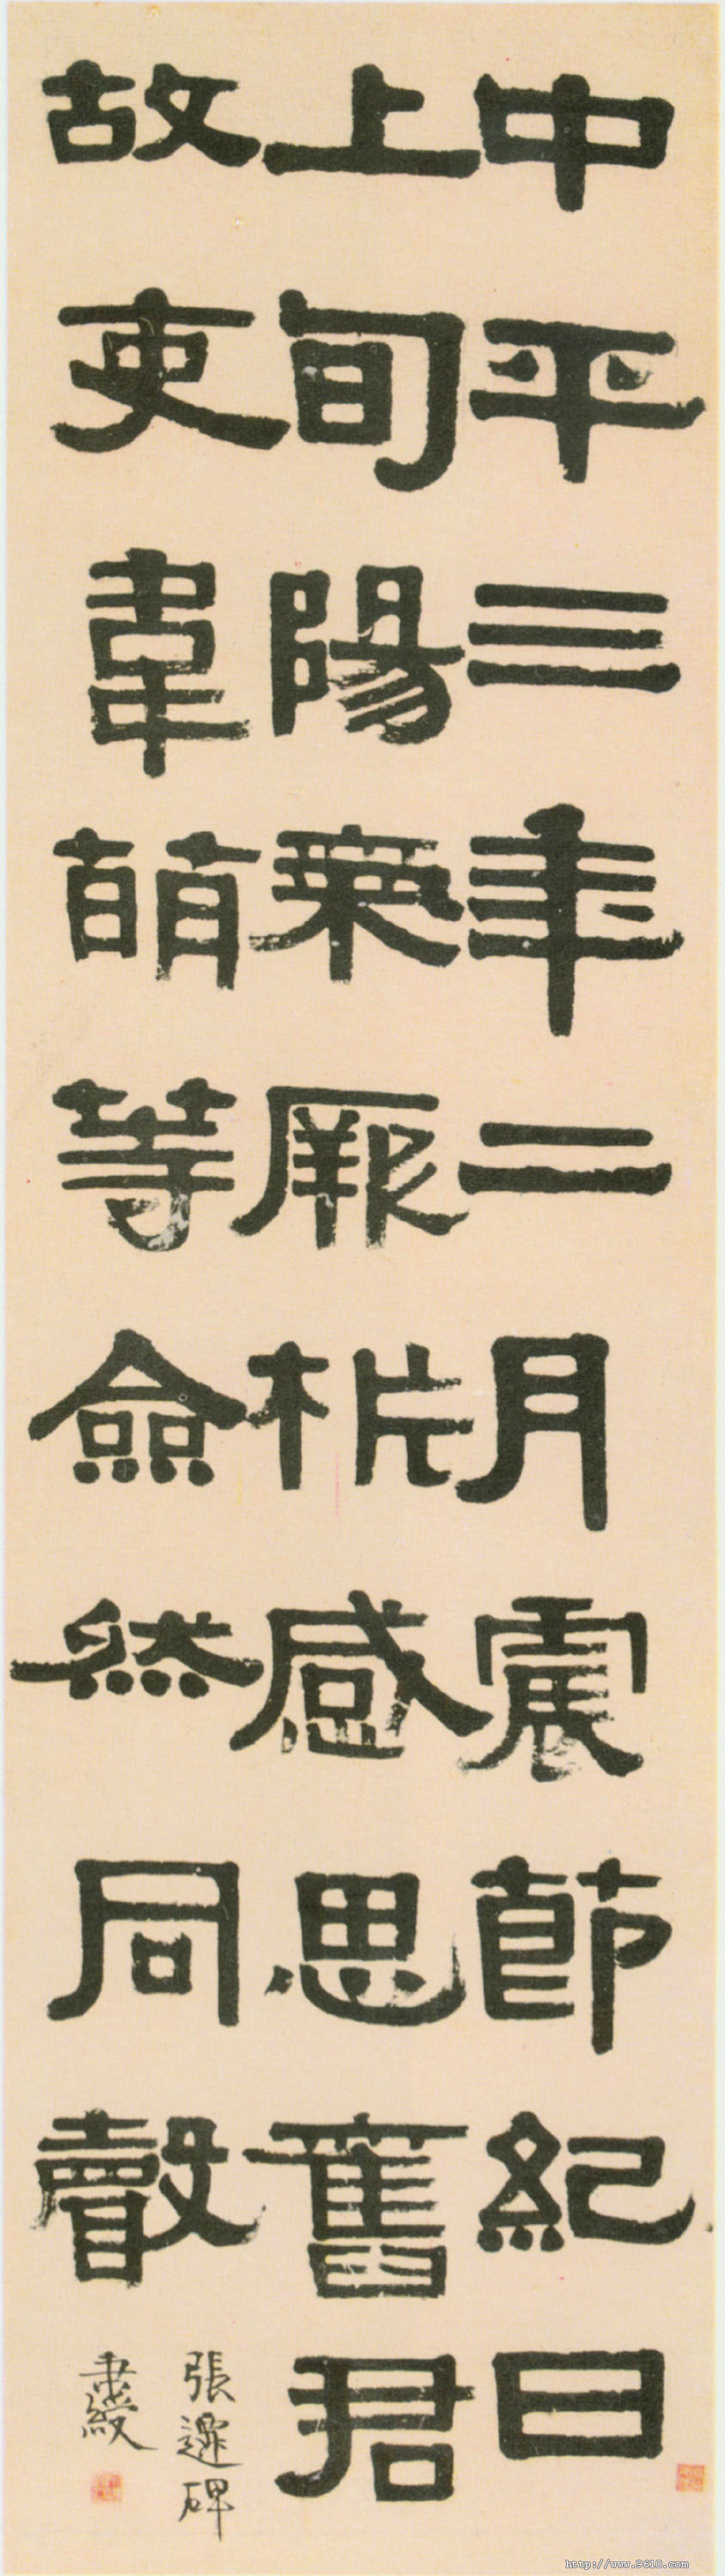 中平三年二月震節紀日
上旬陽氣厥析感思舊君
故吏韋萌等僉然同聲
張遷碑
http://www.9610.com